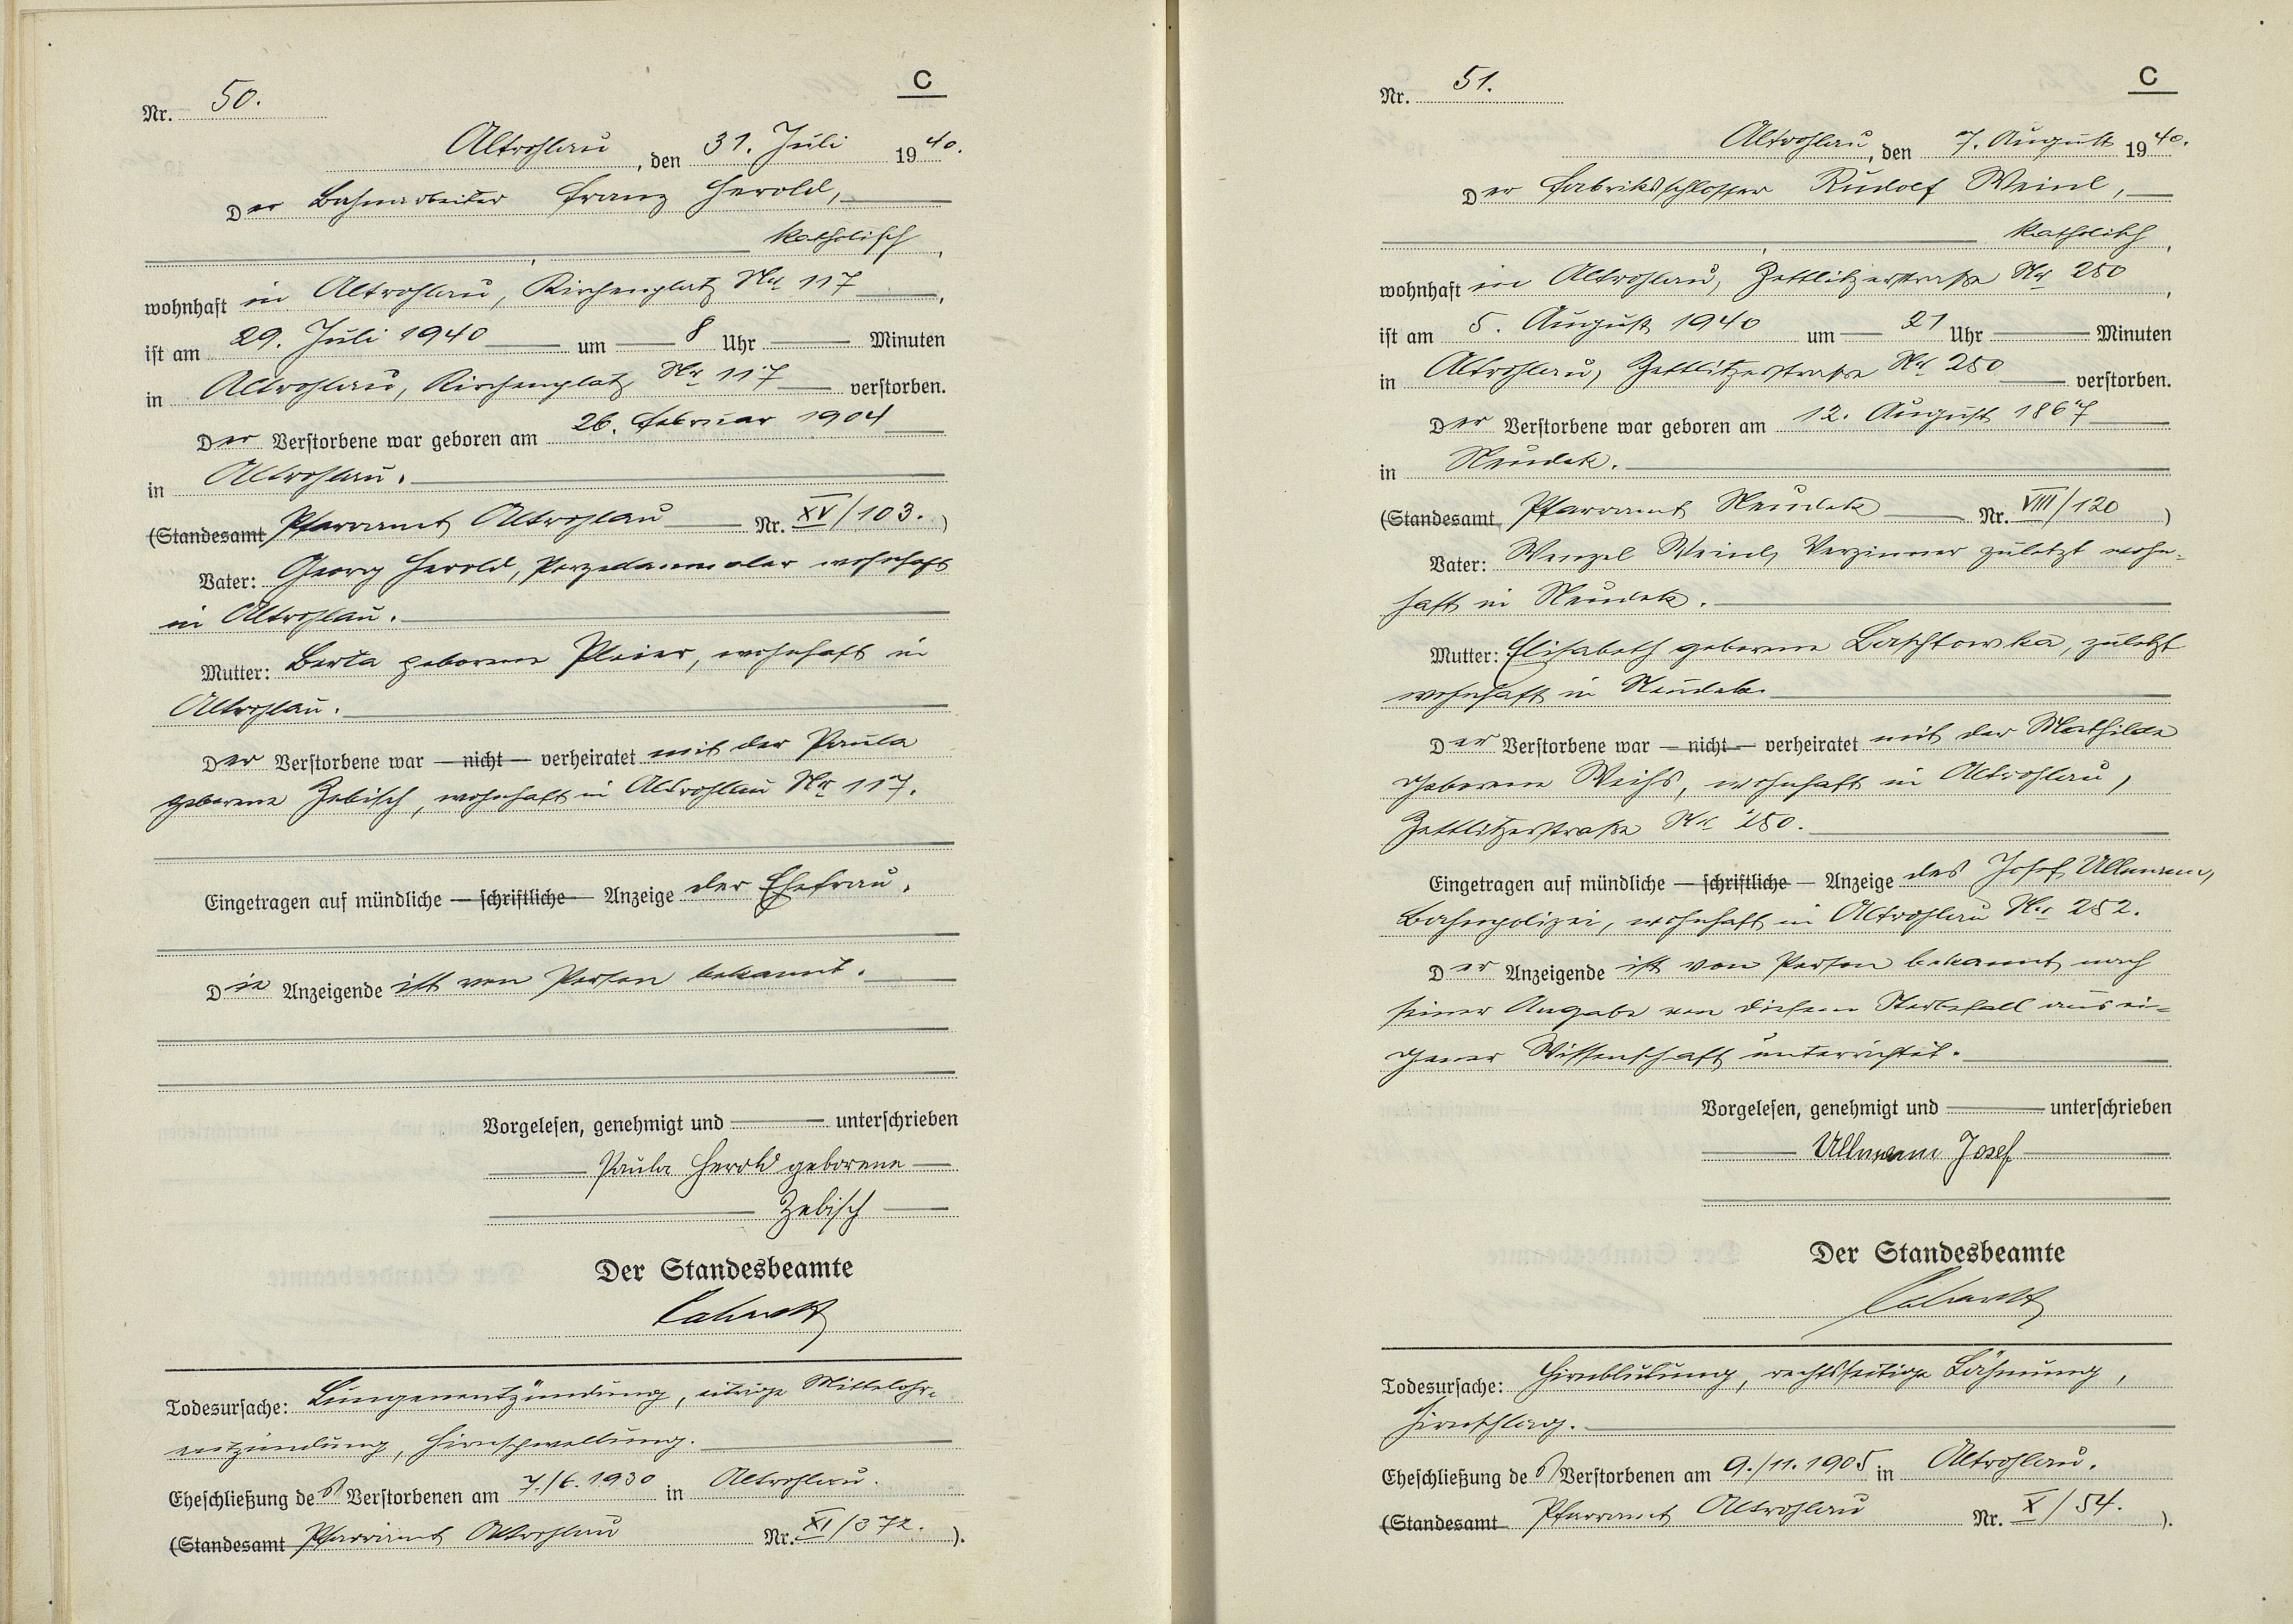 C
Nr. 50.
Altrohlau, den 31. Juli 1940.
Der Bahnarbeiter Franz Herold,
katholisch,
wohnhaft in Altrohlau, Kirchenplatz Nr 117,
ist am 29. Juli 1940 um 8 Uhr Minuten
in Altrohlau, Kirchenplatz Nr 117 verstorben.
Der Verstorbene war geboren am 26. Februar 1904
in Altrohlau.
(Standesamt Pfarramt Altrohlau Nr. XV/103.)
Vater: Georg Herold, Porzellanmaler wohnhaft
in Altrohlau.
Mutter: Berta geborene Pleier, wohnhaft in
Altrohlau.
Der Verstorbene war — nicht — verheiratet mit der Paula
geborene Zebisch, wohnhaft in Altrohlau Nr 117.
Eingetragen auf mündliche — schriftliche — Anzeige der Ehefrau.
Die Anzeigende ist von Person bekannt.
Vorgelesen, genehmigt und unterschrieben
Paula Herold geborene
Zebisch
Der Standesbeamte
Todesursache: Lungenentzündung, eitrige Mittelohr-
entzündung, Hirnschwellung.
Eheschließung des Verstorbenen am 7./6. 1930 in Altrohlau.
(Standesamt Pfarramt Altrohlau Nr. XI/372.).
C
Nr. 51.
Altrohlau, den 7. August 1940.
Der Fabriksschlosser Rudolf Weinl,
katholisch,
wohnhaft in Altrohlau, Zettlitzerstraße Nr 280,
ist am 5. August 1940 um 21 Uhr Minuten
in Altrohlau, Zettlitzerstraße Nr 280 verstorben.
Der Verstorbene war geboren am 12. August 1867
in Neudek.
(Standesamt Pfarramt Neudek Nr. VIII/120)
Vater: Wenzel Weinl, Verzinner zuletzt wohn-
haft in Neudek.
Mutter: Elisabeth geborene Baschtowska, zuletzt
wohnhaft in Neudek.
Der Verstorbene war — nicht — verheiratet mit der Mathilde
geborene Weihs, wohnhaft in Altrohlau,
Zettlitzerstraße Nr 280.
Eingetragen auf mündliche — schriftliche — Anzeige des Josef Ullmann,
Bahnpolizei, wohnhaft in Altrohlau Nr 282.
Der Anzeigende ist von Person bekannt, nach
seiner Angabe von diesem Sterbefall aus ei-
gener Wissenschaft unterrichtet.
Vorgelesen, genehmigt und unterschrieben
Ullmann Josef
Der Standesbeamte
Todesursache: Hirnblutung, rechtsseitige Lähmung,
Hirnschlag.
Eheschließung des Verstorbenen am 9./11. 1905 in Altrohlau.
(Standesamt Pfarramt Altrohlau Nr. X/54.).